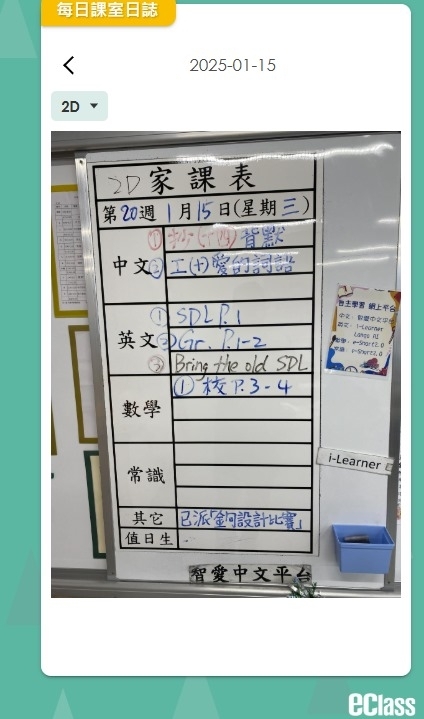 每日課室日誌
2025-01-15
2D
2D 家課表
第20週 1月15日(星期三)
中文
① 背默
② 工(十)愛的詞語
英文
① SDL P.1
② Gr. P.1-2
③ Bring the old SDL
數學
① 校 P.3-4
常識
其它
已派「 設計比賽」
值日生
自主學習 網上平台
i-Learner
i-Learner
智愛中文平台
eClass